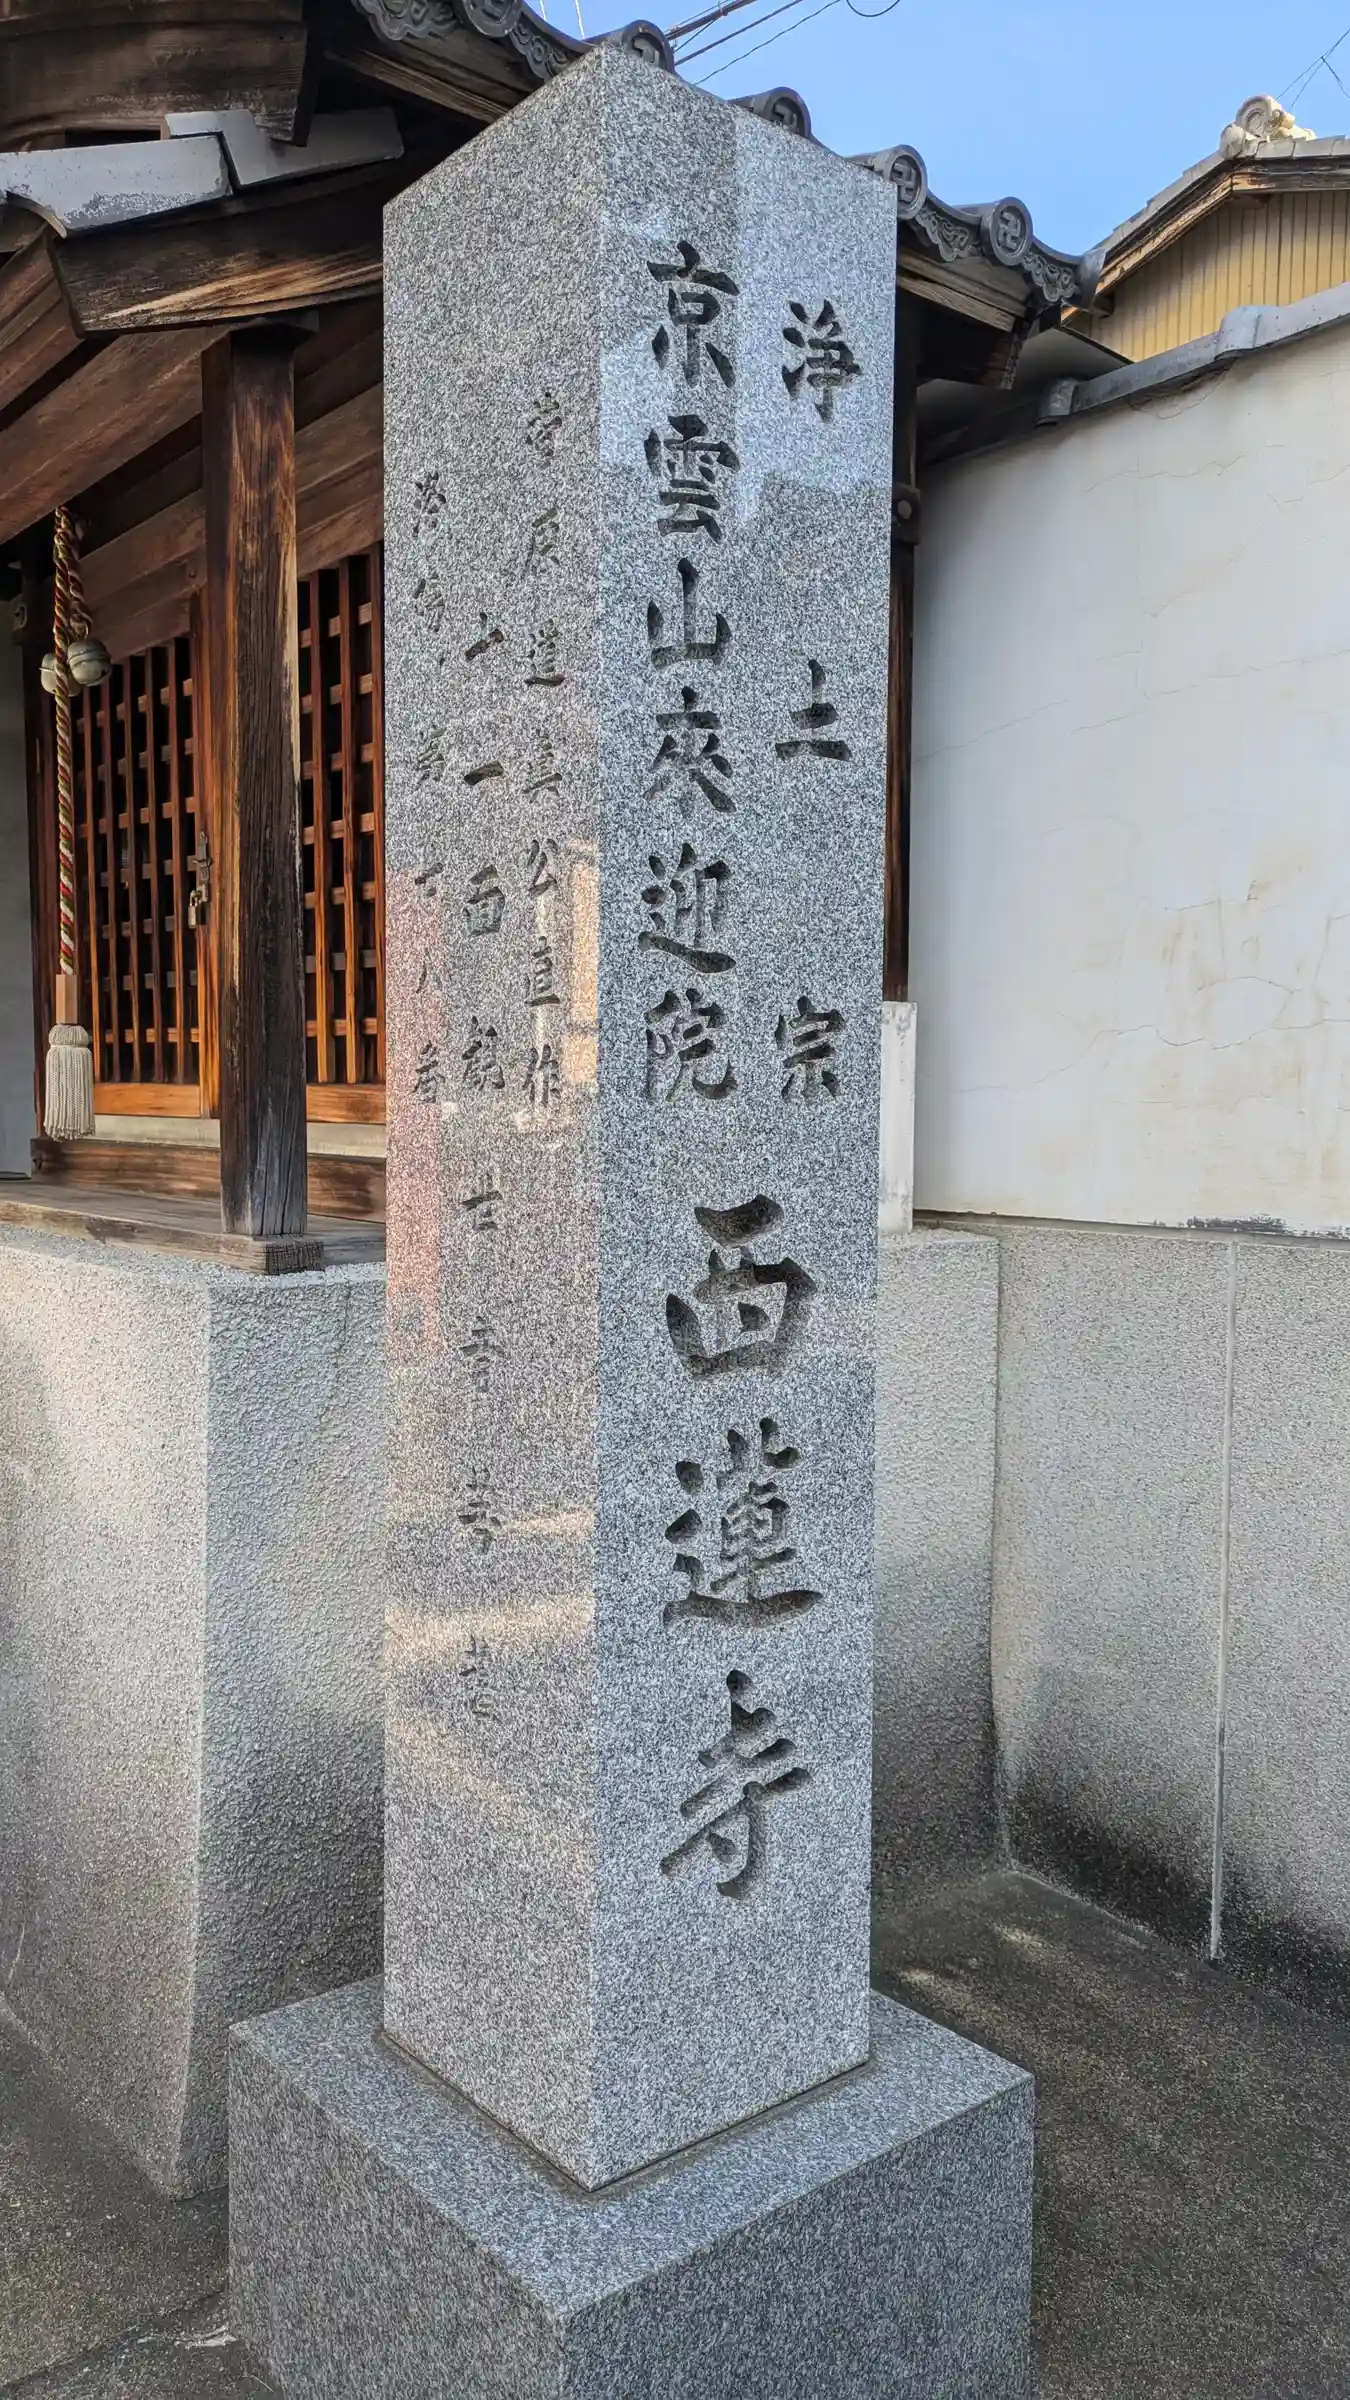 浄土宗
京雲山來迎院西蓮寺
菅原道真公直作
十一面観世音菩薩
洛陽第丁八番